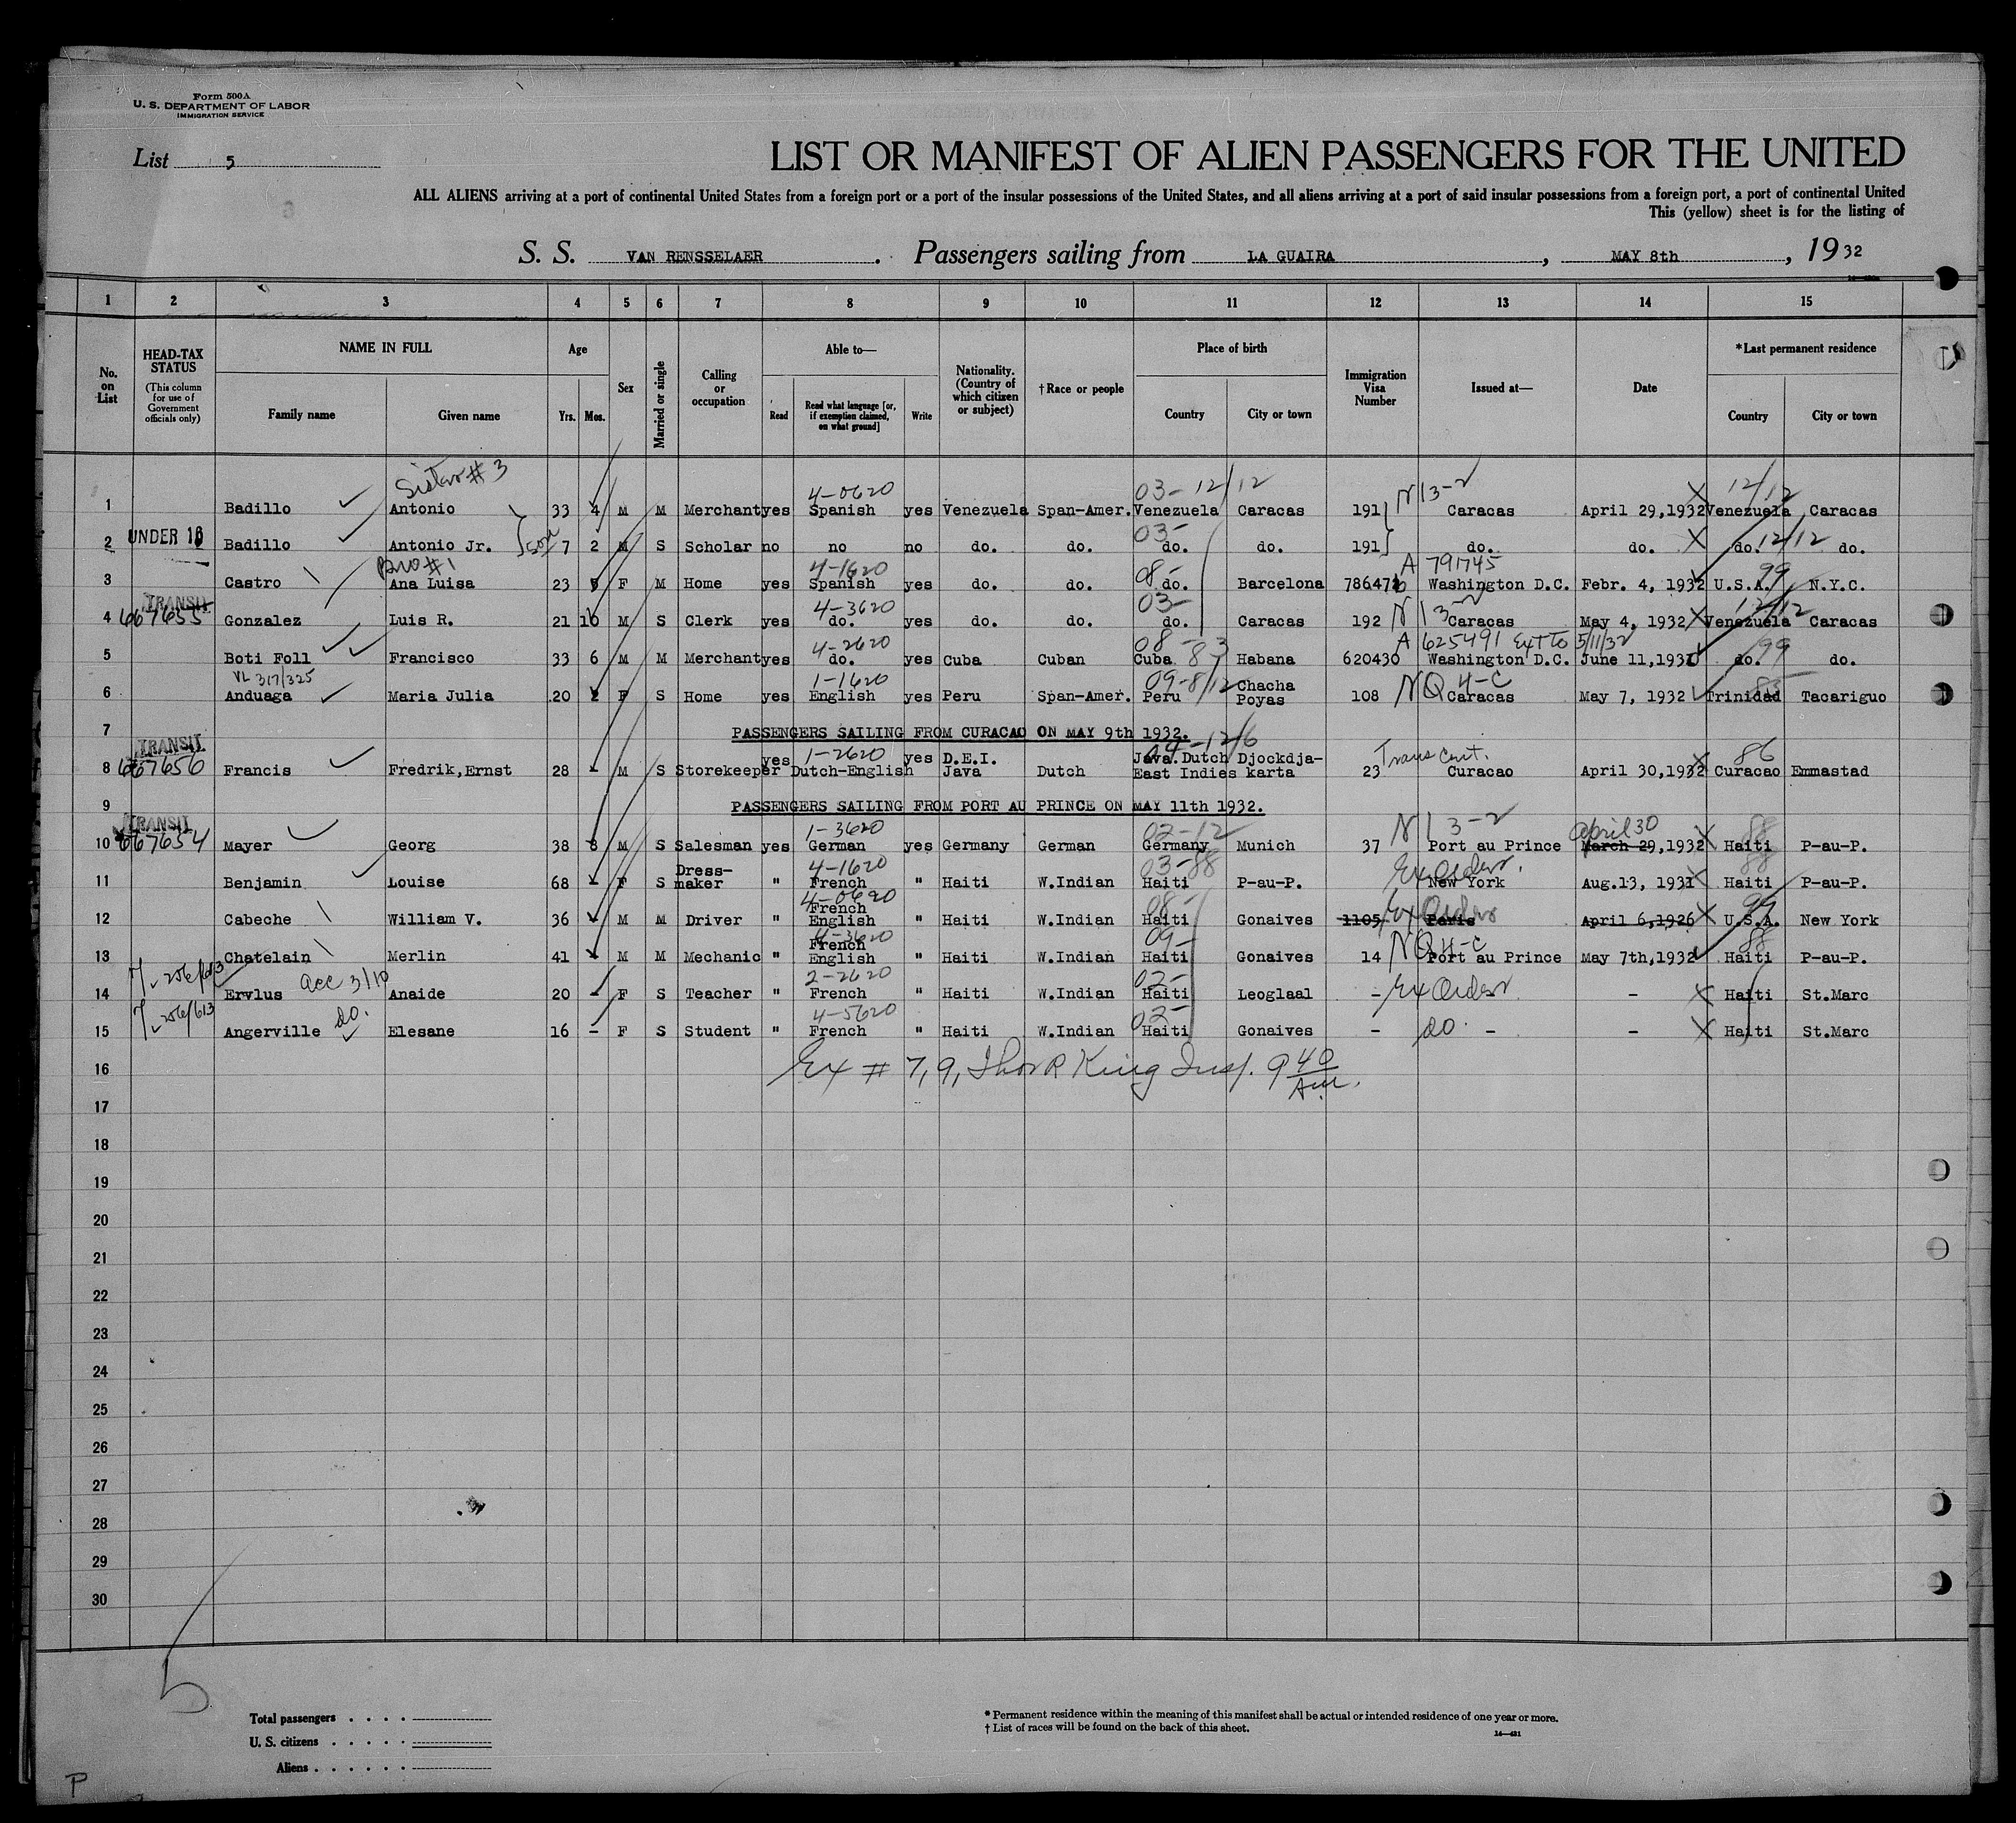 Form 500A
U. S. DEPARTMENT OF LABOR
IMMIGRATION SERVICE
List 5
LIST OR MANIFEST OF ALIEN PASSENGERS FOR THE UNITED
ALL ALIENS arriving at a port of continental United States from a foreign port or a port of the insular possessions of the United States, and all aliens arriving at a port of said insular possessions from a foreign port, a port of continental United
This (yellow) sheet is for the listing of
S. S. VAN RENSSELAER. Passengers sailing from LA GUAIRA, MAY 8th, 1932
1 2 3 4 5 6 7 8 9 10 11 12 13 14 15
No. on List
HEAD-TAX STATUS (This column for use of Government officials only)
NAME IN FULL
Family name Given name
Age
Yrs. Mos.
Sex
Married or single
Calling or occupation
Able to—
Read Read what language [or, if exemption claimed, on what ground] Write
Nationality. (Country of which citizen or subject)
†Race or people
Place of birth
Country City or town
Immigration Visa Number
Issued at—
Date
*Last permanent residence
Country City or town
Sister #3 4-0620 03-12/12 N 13-2 12/12
1 Badillo Antonio 33 4 M M Merchant yes Spanish yes Venezuela Span-Amer. Venezuela Caracas 191 Caracas April 29,1932 Venezuela Caracas
UNDER 16 son 03- 12/12
2 Badillo Antonio Jr. 7 2 M S Scholar no no no do. do. do. do. 191 do. do. do. do.
Bro #1 4-1620 08- A 791745 99
3 Castro Ana Luisa 23 9 F M Home yes Spanish yes do. do. do. Barcelona 786472 Washington D.C. Febr. 4, 1932 U.S.A. N.Y.C.
TRANSIT 667655 4-3620 03- N 13-2 12/12
4 Gonzalez Luis R. 21 10 M S Clerk yes do. yes do. do. do. Caracas 192 Caracas May 4, 1932 Venezuela Caracas
4-2620 08-83 A 625491 Ext to 5/11/32 99
5 Boti Foll Francisco 33 6 M M Merchant yes do. yes Cuba Cuban Cuba Habana 620430 Washington D.C. June 11,1931 do. do.
VL 317/325 1-1620 09-8/12 NQ 4-C 85
6 Anduaga Maria Julia 20 2 F S Home yes English yes Peru Span-Amer. Peru Chacha Poyas 108 Caracas May 7, 1932 Trinidad Tacariguo
7 PASSENGERS SAILING FROM CURACAO ON MAY 9th 1932.
TRANSIT 667656 1-2620 04-12/6 Trans Cert. 86
8 Francis Fredrik,Ernst 28 - M S Storekeeper yes Dutch-English yes D.E.I. Java Dutch Java.Dutch East Indies Djockdja-karta 23 Curacao April 30,1932 Curacao Emmastad
9 PASSENGERS SAILING FROM PORT AU PRINCE ON MAY 11th 1932.
TRANSIT 667654 1-3620 02-12 N 13-2 April 30 88
10 Mayer Georg 38 8 M S Salesman yes German yes Germany German Germany Munich 37 Port au Prince March 29,1932 Haiti P-au-P.
4-1620 03-88 Ex Order. 88
11 Benjamin Louise 68 - F S Dress-maker " French " Haiti W.Indian Haiti P-au-P. New York Aug.13, 1931 Haiti P-au-P.
4-0620 08- Ex Order 99
12 Cabeche William V. 36 - M M Driver " French English " Haiti W.Indian Haiti Gonaives 1105 Paris April 6,1926 U.S.A. New York
4-3620 09- NQ 4-C 88
13 Chatelain Merlin 41 - M M Mechanic " French English " Haiti W.Indian Haiti Gonaives 14 Port au Prince May 7th,1932 Haiti P-au-P.
256/613 acc 3/10 2-2620 02- Ex Order
14 Ervlus Anaide 20 - F S Teacher " French " Haiti W.Indian Haiti Leoglaal - - Haiti St.Marc
256/613 do. 4-5620 02- do.
15 Angerville Elesane 16 - F S Student " French " Haiti W.Indian Haiti Gonaives - - - Haiti St.Marc
16 Ex # 7, 9, Thos R King Insp. 9 40 Am.
17
18
19
20
21
22
23
24
25
26
27
28
29
30
5
Total passengers
U. S. citizens
Aliens
* Permanent residence within the meaning of this manifest shall be actual or intended residence of one year or more.
† List of races will be found on the back of this sheet.
14—481
P